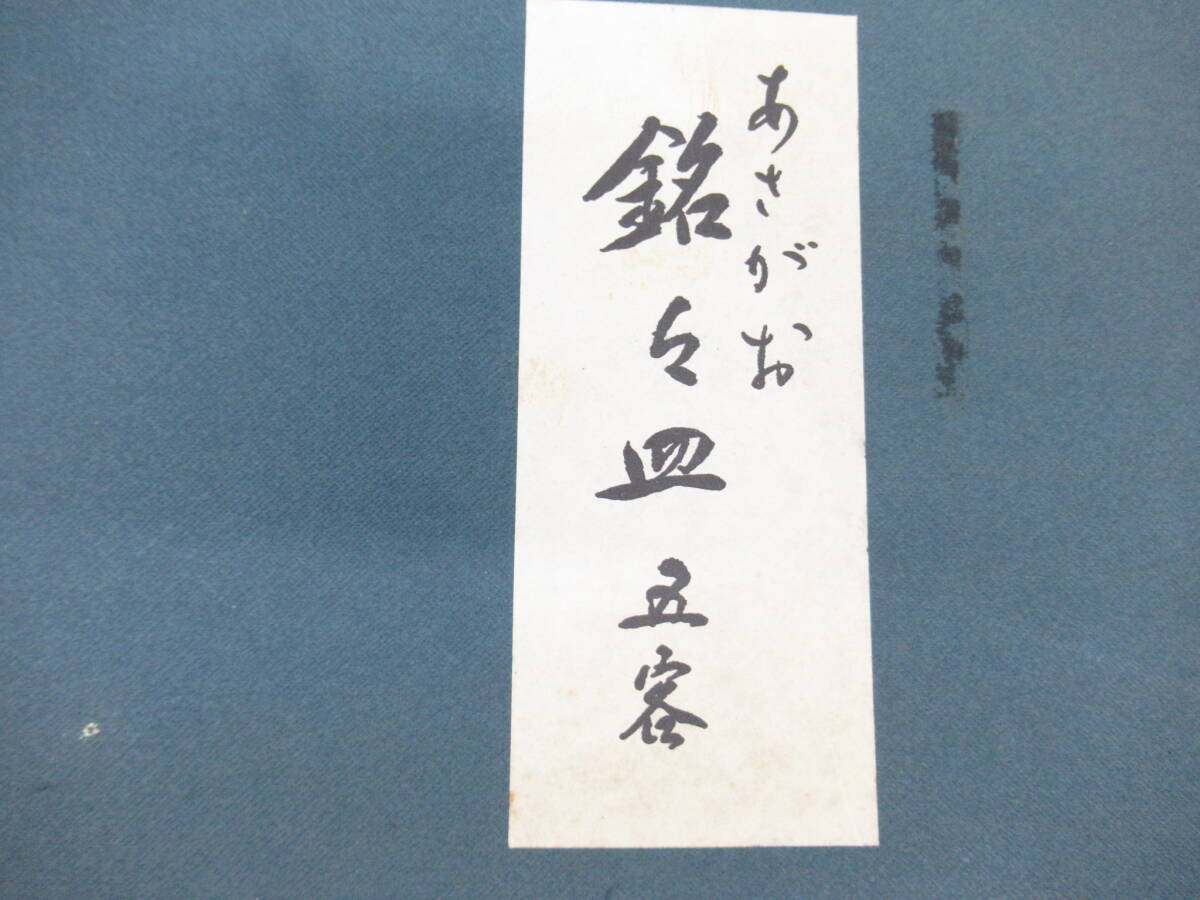 あさがお
銘々皿 五客